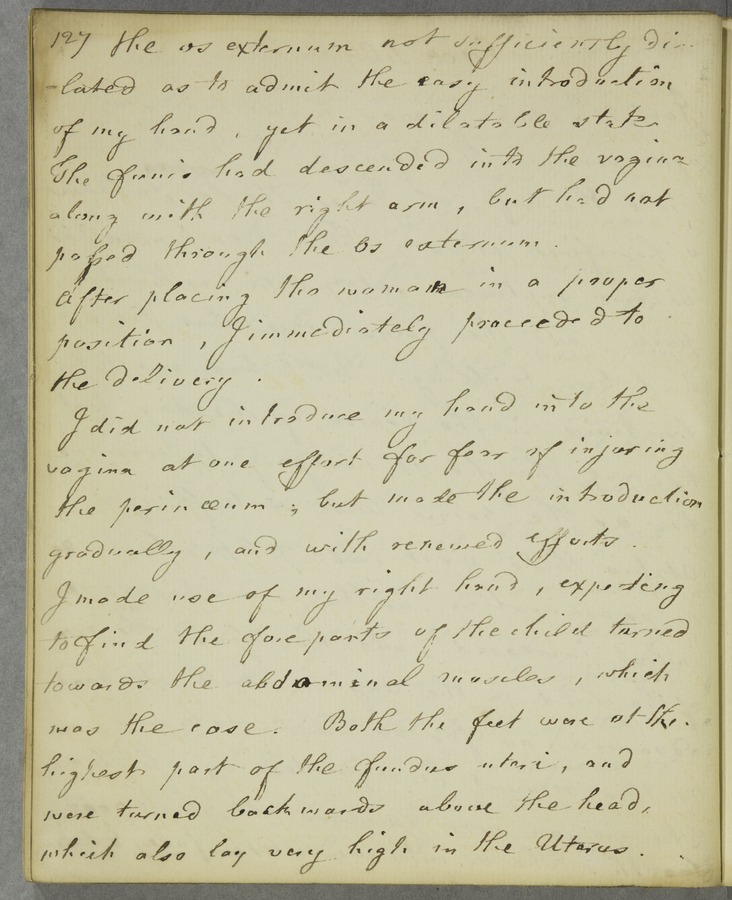 127 the os externum not sufficiently di-
-lated as to admit the easy introduction
of my hand, yet in a dilatable state
The funis had descended into the vagina
along with the right arm, but had not
passed through the Os externum.
After placing the woman in a proper
position, I immediately proceeded to
the delivery.
I did not introduce my hand into the
vagina at one effort for fear of injuring
the perinæum; but made the introduction
gradually, and with renewed efforts.
I made use of my right hand, expecting
to find the fore parts of the child turned
towards the abdominal muscles, which
was the case. Both the feet were at the
highest part of the fundus uteri, and
were turned backwards above the head,
which also lay very high in the Uterus.